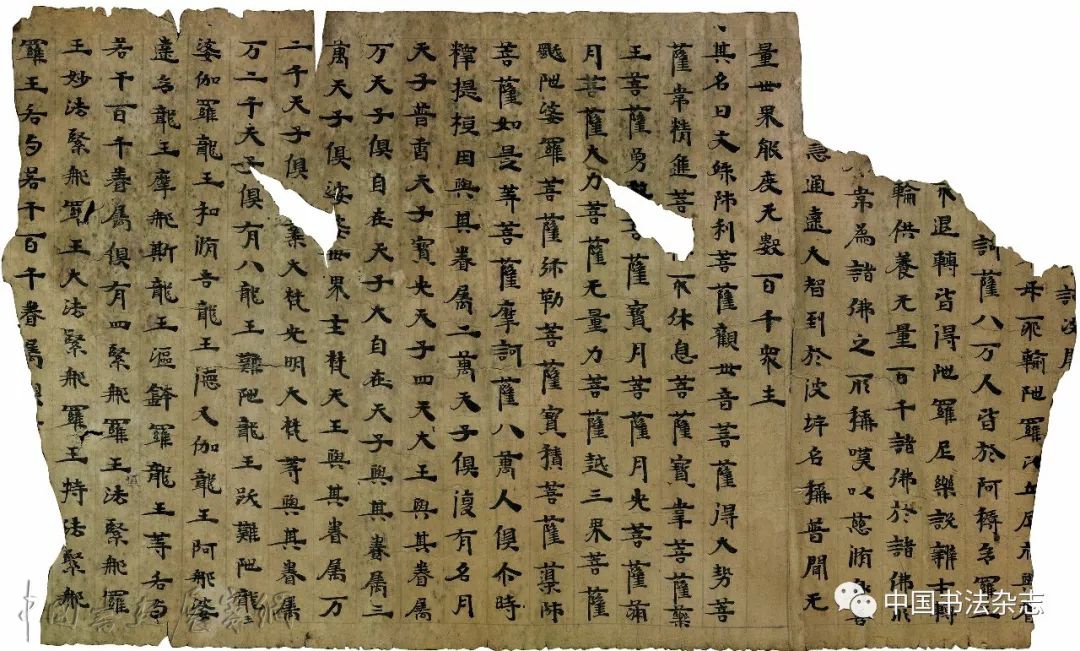 訶波
母耶輸陁羅比丘尼亦與眷
訶薩八万人皆於阿耨多羅三
不退轉皆得陁羅尼樂說辯才轉
輪供養无量百千諸佛於諸佛所
常為諸佛之所稱嘆以慈脩身善
慧通達大智到於彼岸名稱普聞无
量世界能度无數百千衆生
其名曰文殊師利菩薩觀世音菩薩得大勢菩
薩常精進菩不休息菩薩寶掌菩薩藥
王菩薩勇菩薩寶月菩薩月光菩薩滿
月菩薩大力菩薩无量力菩薩越三界菩薩
颰陁婆羅菩薩弥勒菩薩寶積菩薩導師
菩薩如是等菩薩摩訶薩八萬人俱尒時
釋提桓因與其眷属二萬天子俱復有名月
天子普香天子寶光天子四天大王與其眷属
万天子俱自在天子大自在天子與其眷属三
萬天子俱娑婆世界主梵天王與其眷属万
二千天子俱棄大梵光明大梵等與其眷属
万二千天子俱有八龍王難陁龍王跋難陁龍王
娑伽羅龍王和脩吉龍王德叉伽龍王阿那婆
達多龍王摩那斯龍王漚鉢羅龍王等各与
若干百千眷属俱有四緊那羅王法緊那羅
王妙法緊那羅王大法緊那羅王持法緊那
羅王各与若干百千眷属俱
中国书法杂志